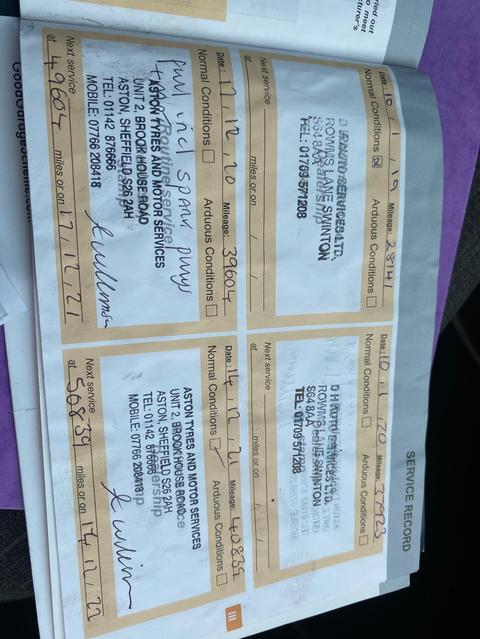 SERVICE RECORD
Date: 10, 1, 19 Mileage: 28141
Normal Conditions Arduous Conditions
D H AUTO SERVICES LTD.
ROWMS LANE SWINTON
S64 8AA
TEL: 01709 571208
Next service
at miles or on / /
Date: 10, 1, 20 Mileage:
Normal Conditions Arduous Conditions
D H AUTO SERVICES LTD.
ROWMS LANE SWINTON
S64 8AA
TEL: 01709 571208
Next service
at miles or on / /
Date: 17, 12, 20 Mileage: 39604
Normal Conditions Arduous Conditions
Routine service
ASTON TYRES AND MOTOR SERVICES
UNIT 2, BROOK HOUSE ROAD
ASTON, SHEFFIELD S26 2AH
TEL: 01142 876666
MOBILE: 07766 208418
Next service
at 49604 miles or on 17, 12, 21
Date: 14, 12, 21 Mileage: 40839
Normal Conditions Arduous Conditions
ASTON TYRES AND MOTOR SERVICES
UNIT 2, BROOK HOUSE ROAD
ASTON, SHEFFIELD S26 2AH
TEL: 01142 876666
MOBILE: 07766 208418
Next service
at 50839 miles or on 14, 12, 22
III